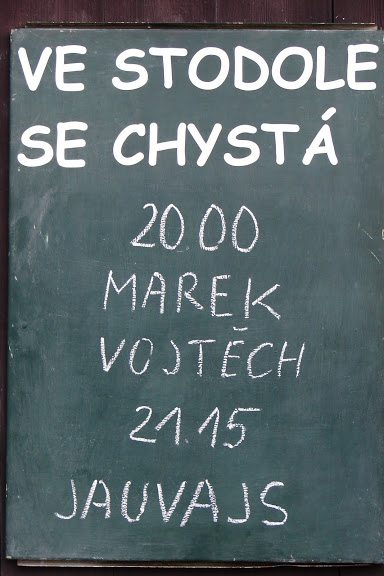 VE STODOLE
SE CHYSTÁ
20 00
MAREK
VOJTĚCH
21.15
JAUVAJS